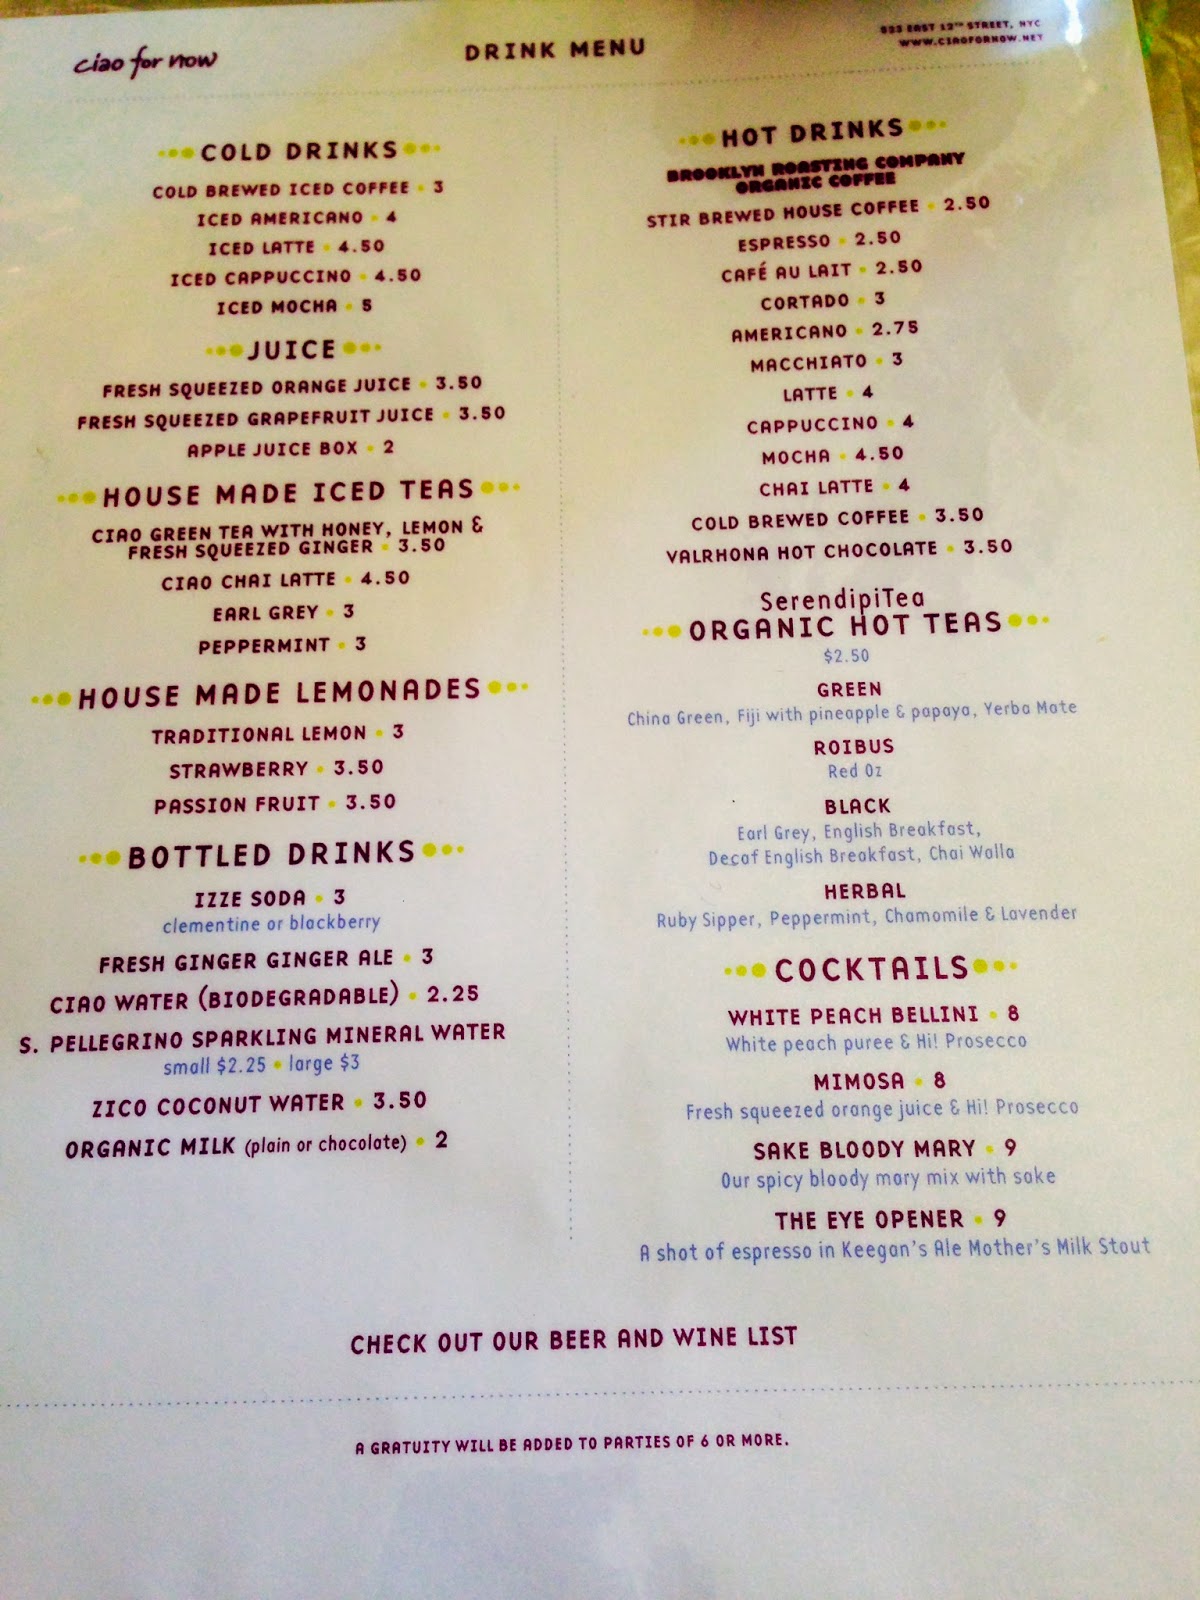 ciao for now
DRINK MENU
523 EAST 12TH STREET, NYC
WWW.CIAOFORNOW.NET
COLD DRINKS
COLD BREWED ICED COFFEE • 3
ICED AMERICANO • 4
ICED LATTE • 4.50
ICED CAPPUCCINO • 4.50
ICED MOCHA • 5
JUICE
FRESH SQUEEZED ORANGE JUICE • 3.50
FRESH SQUEEZED GRAPEFRUIT JUICE • 3.50
APPLE JUICE BOX • 2
HOUSE MADE ICED TEAS
CIAO GREEN TEA WITH HONEY, LEMON &
FRESH SQUEEZED GINGER • 3.50
CIAO CHAI LATTE • 4.50
EARL GREY • 3
PEPPERMINT • 3
HOUSE MADE LEMONADES
TRADITIONAL LEMON • 3
STRAWBERRY • 3.50
PASSION FRUIT • 3.50
BOTTLED DRINKS
IZZE SODA • 3
clementine or blackberry
FRESH GINGER GINGER ALE • 3
CIAO WATER (BIODEGRADABLE) • 2.25
S. PELLEGRINO SPARKLING MINERAL WATER
small $2.25 • large $3
ZICO COCONUT WATER • 3.50
ORGANIC MILK (plain or chocolate) • 2
HOT DRINKS
BROOKLYN ROASTING COMPANY
ORGANIC COFFEE
STIR BREWED HOUSE COFFEE • 2.50
ESPRESSO • 2.50
CAFÉ AU LAIT • 2.50
CORTADO • 3
AMERICANO • 2.75
MACCHIATO • 3
LATTE • 4
CAPPUCCINO • 4
MOCHA • 4.50
CHAI LATTE • 4
COLD BREWED COFFEE • 3.50
VALRHONA HOT CHOCOLATE • 3.50
SerendipiTea
ORGANIC HOT TEAS
$2.50
GREEN
China Green, Fiji with pineapple & papaya, Yerba Mate
ROIBUS
Red Oz
BLACK
Earl Grey, English Breakfast,
Decaf English Breakfast, Chai Walla
HERBAL
Ruby Sipper, Peppermint, Chamomile & Lavender
COCKTAILS
WHITE PEACH BELLINI • 8
White peach puree & Hi! Prosecco
MIMOSA • 8
Fresh squeezed orange juice & Hi! Prosecco
SAKE BLOODY MARY • 9
Our spicy bloody mary mix with sake
THE EYE OPENER • 9
A shot of espresso in Keegan's Ale Mother's Milk Stout
CHECK OUT OUR BEER AND WINE LIST
A GRATUITY WILL BE ADDED TO PARTIES OF 6 OR MORE.